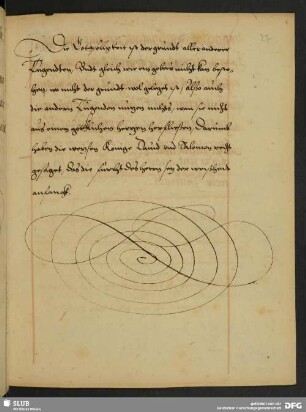 Die Gotzforcht ist der grundt aller anderer
Tugendten, Vndt gleich wie ein gebew nicht kan beste-
hen, wo nicht der grundt wol geleget ist, Also auch
die andern Tugenden nutzen nichts, wan sie nicht
aus einem gottlichen hertzen herfliessen. Darumb
haben die weysen Konige Dauid vnd Salomon recht
gesaget, das die furcht des herren sey der weisheit
anfangk.
27
SLUB
DFG